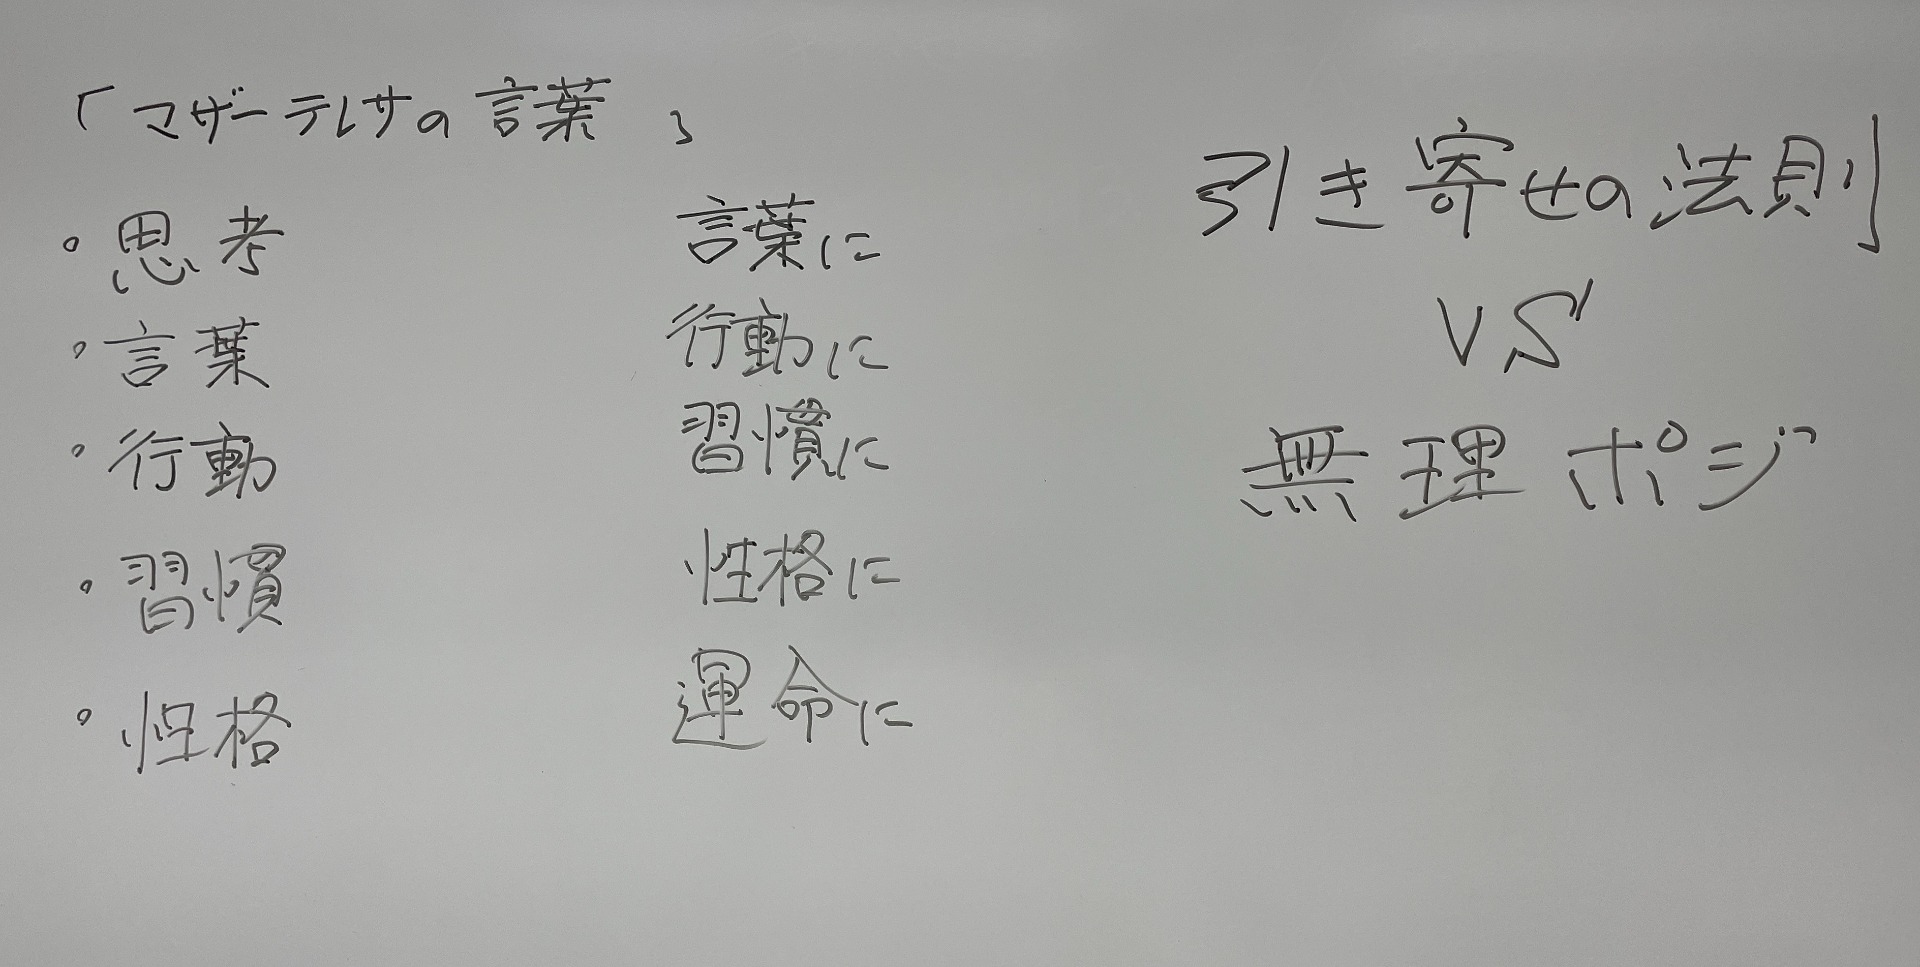 「マザーテレサの言葉」
・思考 言葉に
・言葉 行動に
・行動 習慣に
・習慣 性格に
・性格 運命に
引き寄せの法則
VS
無理ポジ